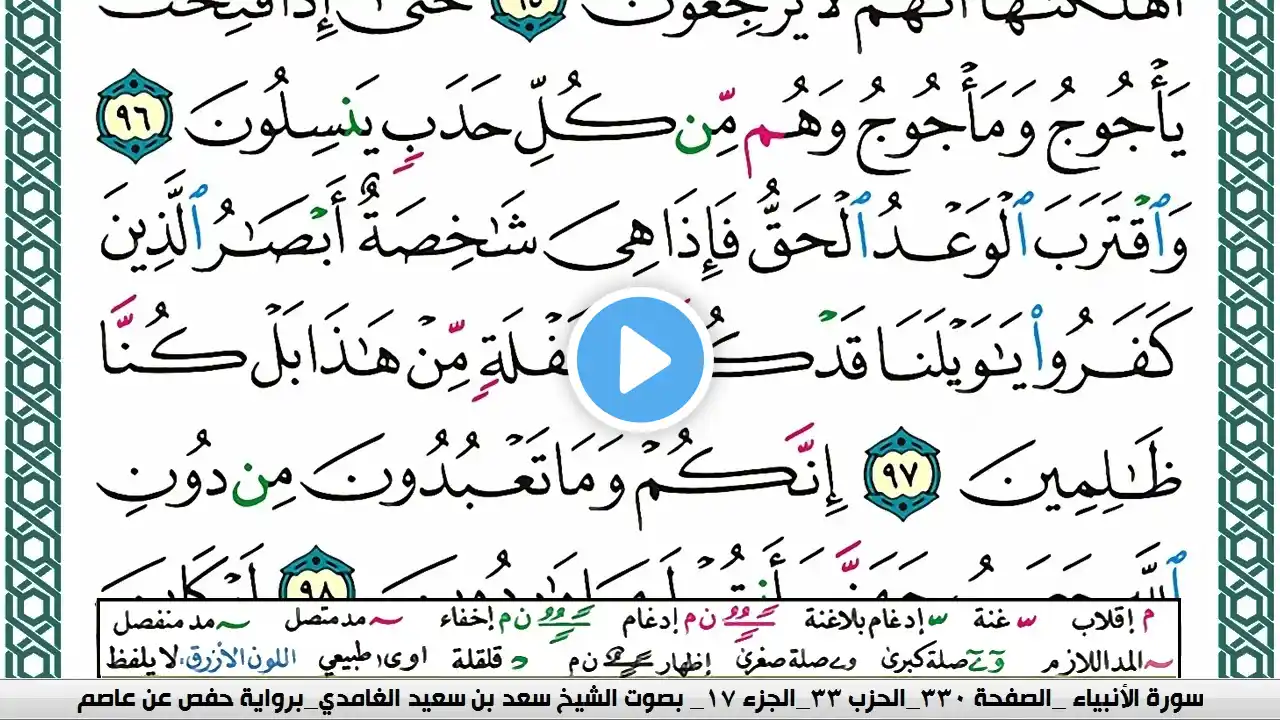 أَهْلَكْنَٰهَآ أَنَّهُمْ لَا يَرْجِعُونَ ٩٥ حَتَّىٰٓ إِذَا فُتِحَتْ
يَأْجُوجُ وَمَأْجُوجُ وَهُم مِّن كُلِّ حَدَبٍ يَنسِلُونَ ٩٦
وَٱقْتَرَبَ ٱلْوَعْدُ ٱلْحَقُّ فَإِذَا هِىَ شَٰخِصَةٌ أَبْصَٰرُ ٱلَّذِينَ
كَفَرُوا۟ يَٰوَيْلَنَا قَدْ كُ فْلَةٍ مِّنْ هَٰذَا بَلْ كُنَّا
ظَٰلِمِينَ ٩٧ إِنَّكُمْ وَمَا تَعْبُدُونَ مِن دُونِ
ٱللَّهِ حَصَبُ جَهَنَّمَ أَنتُمْ لَهَا وَٰرِدُونَ ٩٨ لَوْ كَانَ
م إقلاب غنة إدغام بلا غنة ن م إدغام ن م إخفاء مد متصل مد منفصل
المد اللازم صلة كبرى صلة صغرى ن م إظهار قلقلة اوى طبيعي اللون الأزرق: لا يلفظ
سورة الأنبياء _الصفحة ٣٣٠_الحزب ٣٣_الجزء ١٧_ بصوت الشيخ سعد بن سعيد الغامدي_برواية حفص عن عاصم